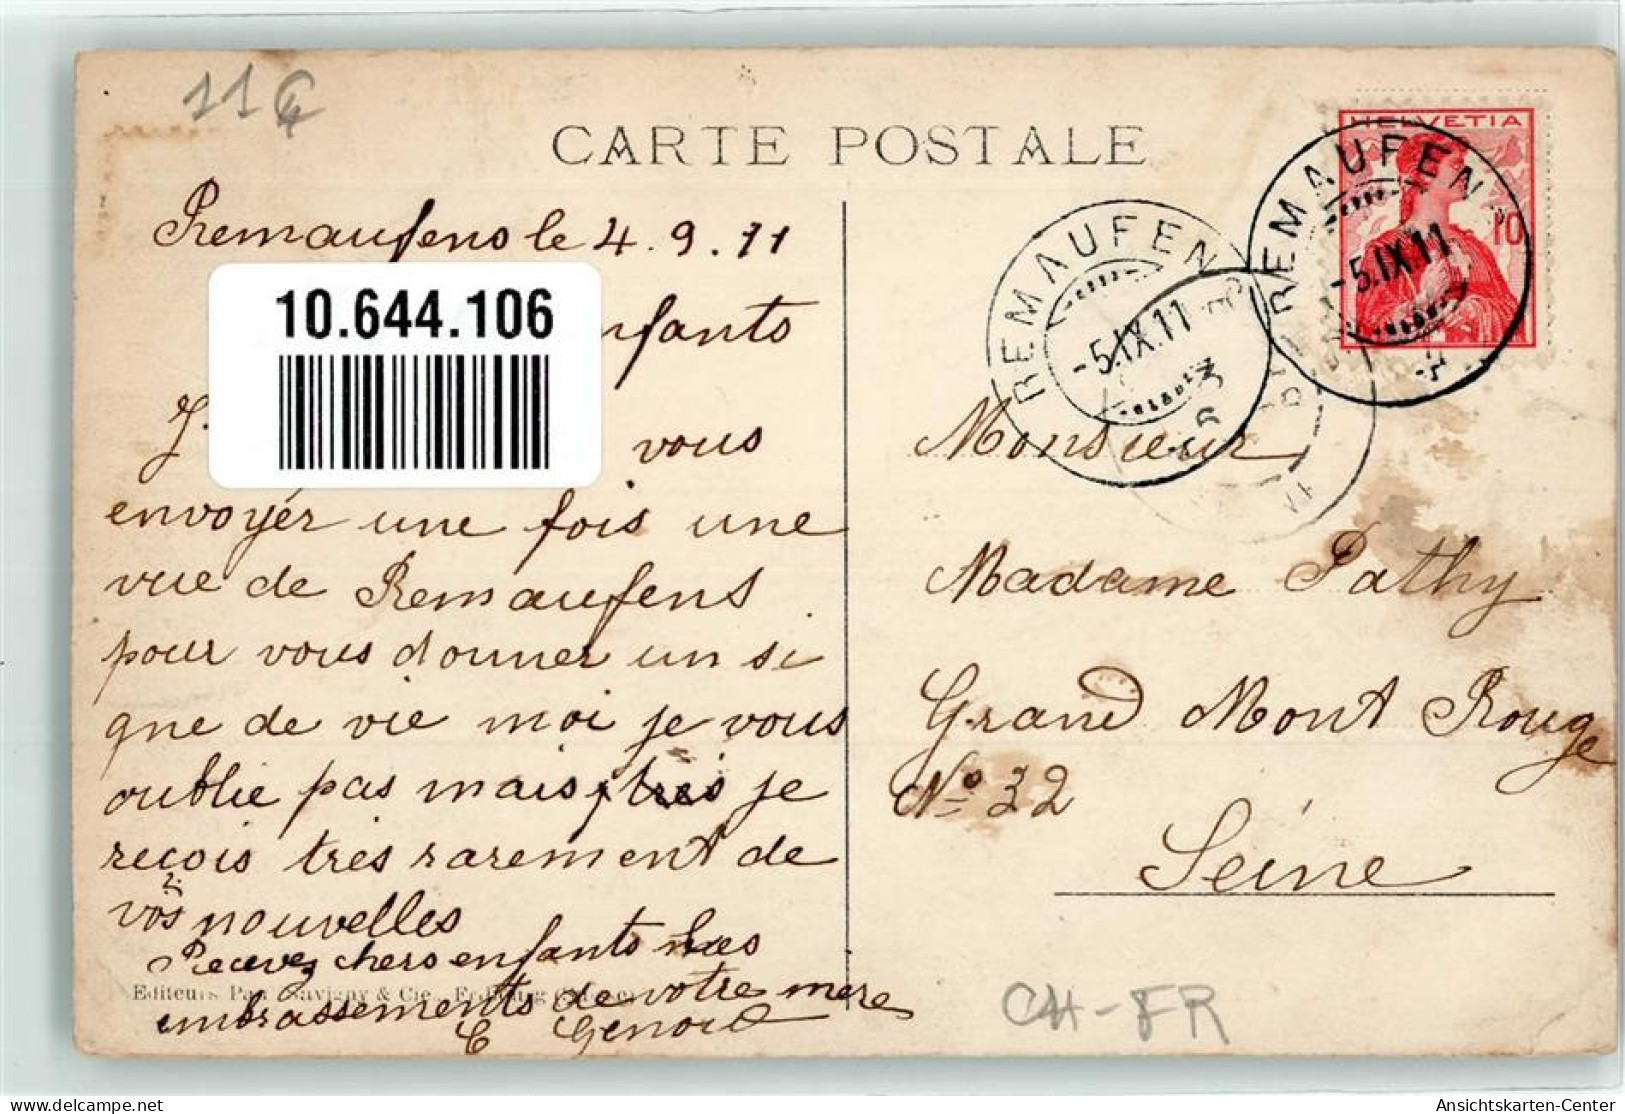 11
CARTE POSTALE
HELVETIA
10
REMAUFENS
-5.IX.11
REMAUFENS
-5.IX.11
Remaufens le 4.9.11
10.644.106
nfants
J.
vous
envoyér une fois une
vue de Remaufens
pour vous donner un si
gne de vie moi je vous
oublie pas mais très je
reçois très rarement de
vos nouvelles
Recevez chers enfants les
Editeurs Savigny & Cie
embrassements de votre mère
C Genoud
Monsieur
Madame Pathy
Grand Mont Rouge
No 32
Seine
CH-FR
delcampe.net
Ansichtskarten-Center